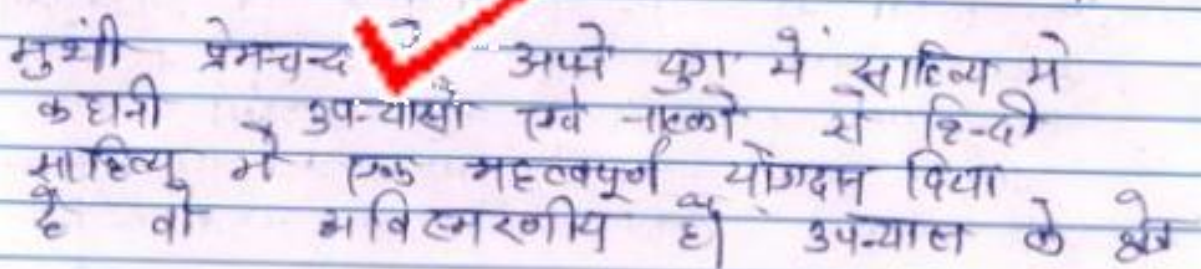 मुशी प्रेमचन्द अपने युग में साहित्य मे
कहानी उपन्यासो एवं नाटको से हिन्दी
साहित्य में एक महत्वपूर्ण योगदान दिया
है वो अविस्मरणीय है। उपन्यास के क्षेत्र